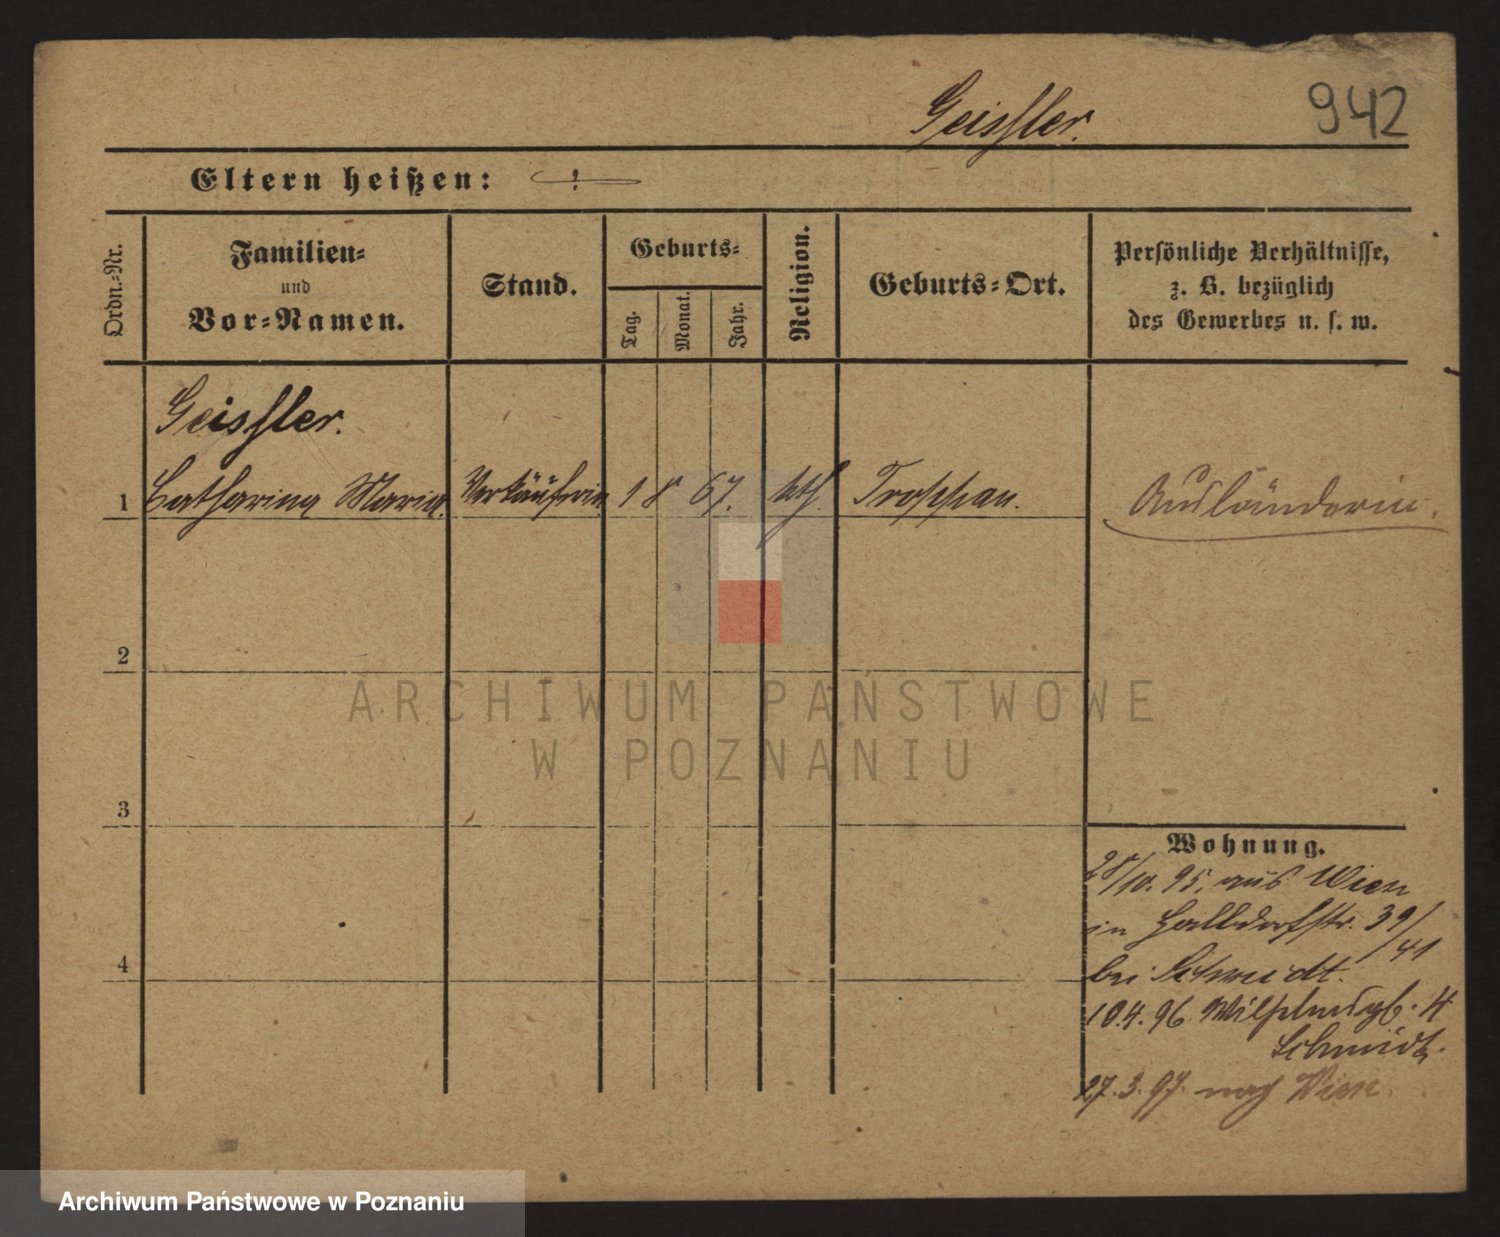 Geissler.
942
Eltern heißen:
Ordn.-Nr.
Familien-
und
Vor-Namen.
Stand.
Geburts-
Tag.
Monat.
Jahr.
Religion.
Geburts-Ort.
Persönliche Verhältnisse,
z. B. bezüglich
des Gewerbes u. s. w.
Geissler.
1 Catharina Maria. Verkäuferin 1 8 67. kth. Troppau. Ausländerin.
2
3
4
Wohnung.
28/10. 95. aus Wien
in Halbdorfstr. 39/
41
bei Schmidt.
10.4.96 Wilhelmspl. 4
Schmidt.
27.3.97. nach Wien.
ARCHIWUM PAŃSTWOWE
W POZNANIU
Archiwum Państwowe w Poznaniu